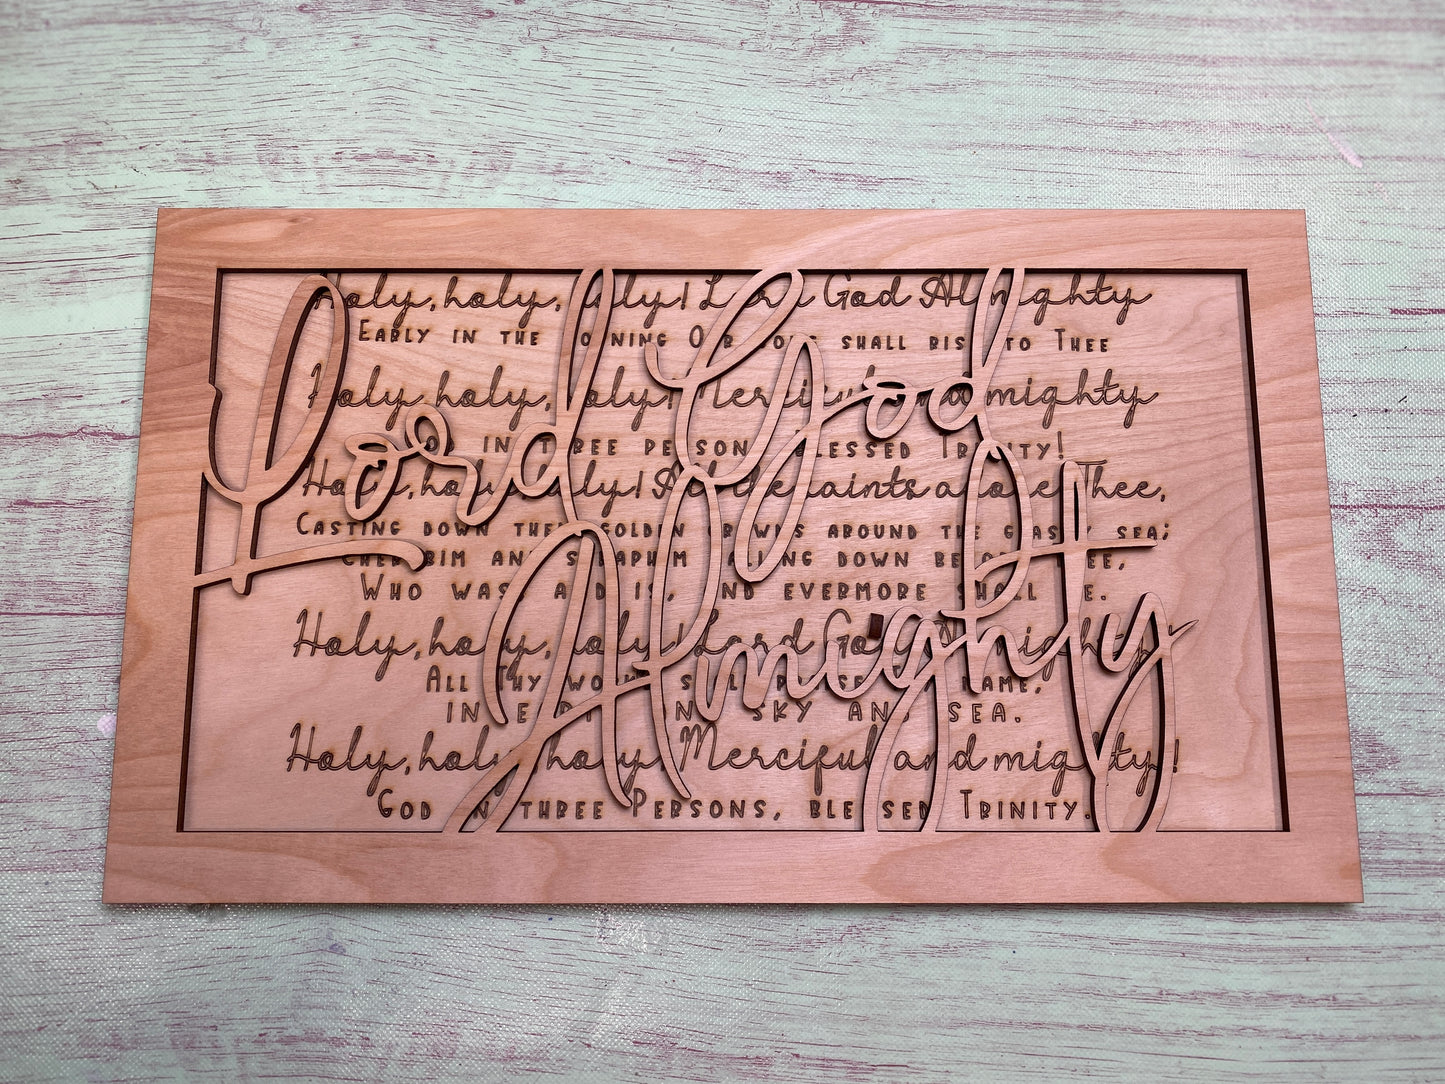 Lord God
Almighty
Holy, holy, holy! Lord God Almighty
Early in the morning Our song shall rise to Thee
Holy, holy, holy! Merciful and mighty
God in three persons blessed Trinity!
Holy, holy, holy! All the saints adore Thee,
Casting down their golden crowns around the glassy sea;
Cherubim and seraphim falling down before Thee,
Who was, and is, and evermore shall be.
Holy, holy, holy! Lord God Almighty
All Thy works shall praise Thy name,
in earth and sky and sea.
Holy, holy, holy! Merciful and mighty!
God in three Persons, blessed Trinity.